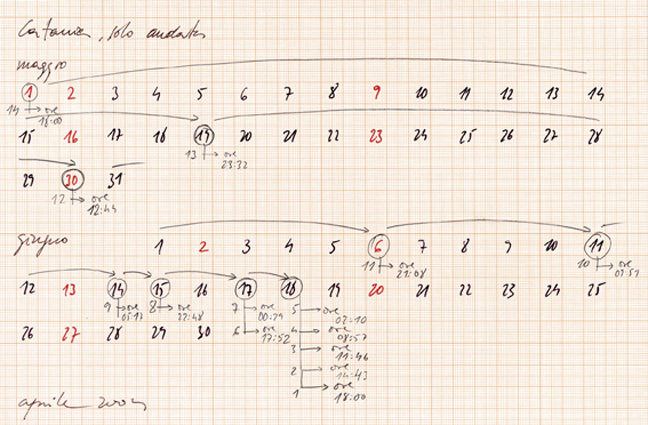 Catania, solo andata
maggio
1 2 3 4 5 6 7 8 9 10 11 12 13 14
14 ore
18:00
15 16 17 18 19 20 21 22 23 24 25 26 27 28
13 ore
23:32
29 30 31
12 ore
12:44
giugno 1 2 3 4 5 6 7 8 9 10 11
11 ore 10 ore
21:08
12 13 14 15 16 17 18 19 20 21 22 23 24 25
9 ore 8 ore 7 ore 5 ore
05:17 22:48 00:29 02:10
6 ore 4 ore
17:52 08:57
3 ore
11:46
2 ore
14:43
1 ore
18:00
26 27 28 29 30
aprile 2004